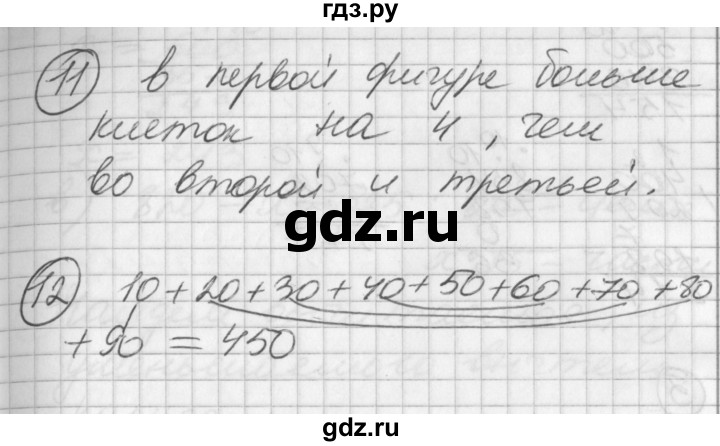 гдз.ру
11 в первой фигуре больше
клеток на 4, чем
во второй и третьей.
gdz.ru
12 10+20+30+40+50+60+70+80
+90=450
gdz.ru